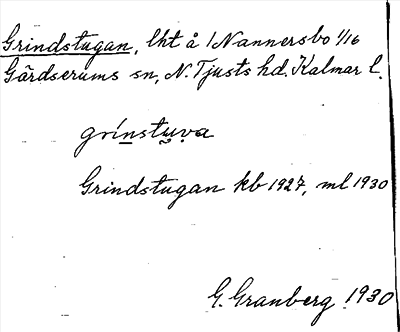 Grindstugan, lht å 1 Nannersbo 1/16
Gärdserums sn, N. Tjusts hd. Kalmar l.
grínstuva
Grindstugan kb 1927, ml 1930
G. Granberg 1930